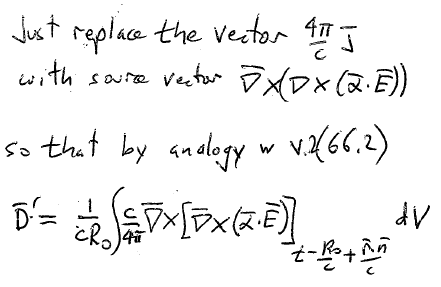 Just replace the vector 4π/c J̄
with source vector ∇̄×(∇×(ᾱ·Ē))
so that by analogy w v.2(66.2)
D̄' = 1/(cR₀) ∫ c/4π ∇̄×[∇̄×(ᾱ·Ē)]_{t-R₀/c+r̄·n̄/c} dV